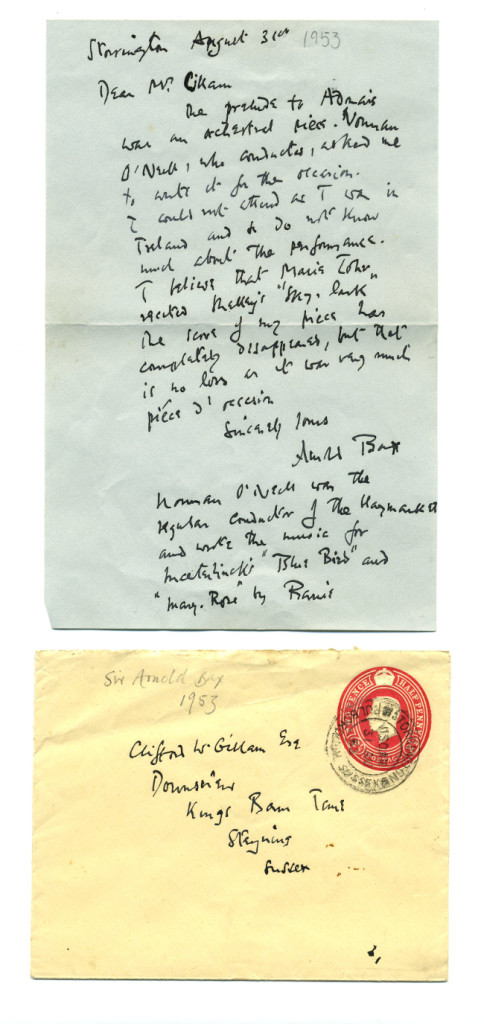 Storrington August 31st 1953
Dear Mr. Gillam
The prelude to Adonais
was an orchestral piece. Norman
O'Neill, who conducted, asked me
to write it for the occasion.
I could not attend as I was in
Ireland and so do not know
much about the performance.
I believe that Marie Tohr
recited Shelley's "Sky-lark"
The score of my piece has
completely disappeared, but that
is no loss as it was very much
pièce d'occasion
Sincerely yours
Arnold Bax
Norman O'Neill was the
regular conductor of the Haymarket
and wrote the music for
Maeterlinck's "Blue Bird" and
"Mary-Rose" by Barrie
Sir Arnold Bax
1953
HALFPENNY
SUSSEX
Clifford W Gillam Esq
Downsview
Kings Barn Lane
Steyning
Sussex